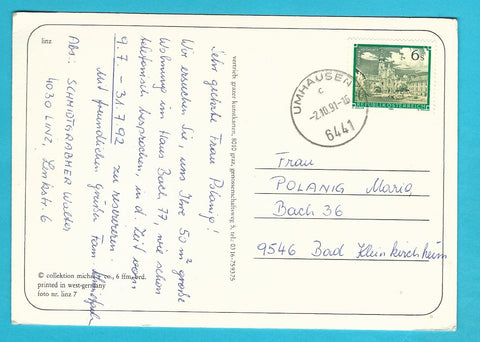 linz
Sehr geehrte Frau Polanig!
Wir ersuchen Sie, uns Ihre 50 m² große
Wohnung im Haus Bach 77, wie schon
telefonisch besprochen, in d. Zeit vom
9.7. – 31.7.92 zu reservieren.
Mit freundlichen Grüßen Fam.
Abs: SCHMIDTGRABMER Walter
4030 LINZ,
6
© collektion
printed in west-germany
foto nr. linz 7
vertrieb: grazer kunstkarten, 8010 graz, grenzenerschaftsweg 3, tel.: 0316-759375
UMHAUSEN
c
-2.10.91-16
6441
6 S
REPUBLIK ÖSTERREICH
Frau
POLANIG Maria
Bach 36
9546 Bad Kleinkirchheim